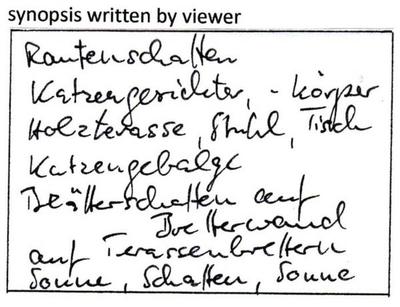 synopsis written by viewer
Rautenschatten
Katzengesichter, - körper
Holzterasse, Stuhl, Tisch
Katzengebalge
Blätterschatten auf
Bretterwand
auf Terassenbrettern
Sonne, Schatten, Sonne